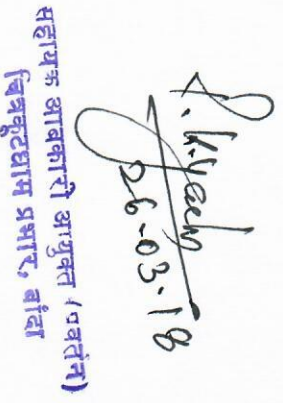 26-03-18
सहायक आबकारी आयुक्त (प्रवर्तन)
चित्रकूटधाम प्रभार, बांदा